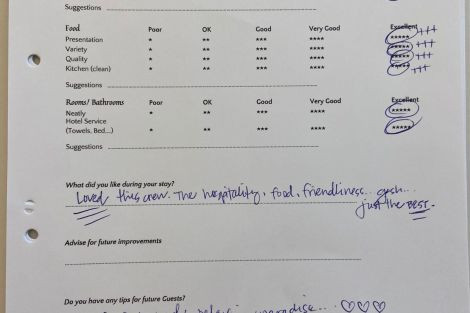 Suggestions
Food Poor OK Good Very Good Excellent
Presentation * ** *** **** ***** +++
Variety * ** *** **** ***** +++
Quality * ** *** **** ***** +++
Kitchen (clean) * ** *** **** ***** +++
Suggestions
Rooms/ Bathrooms Poor OK Good Very Good Excellent
Neatly * ** *** **** *****
Hotel Service
(Towels, Bed....) * ** *** **** *****
Suggestions
What did you like during your stay?
Loved this crew. The hospitality, food, friendliness... gosh...
just the BEST.
Advise for future improvements
Do you have any tips for future Guests?
paradise... ♡♡♡